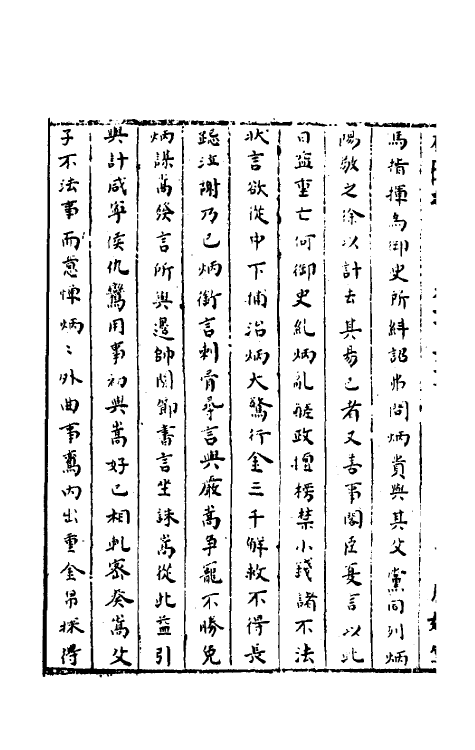 馬指揮為御史所糾詔弗問炳貴與其父黨同列炳
陽敬之徐以計去其易己者又善事閣臣夏言以此
日益重亡何御史糺炳乱鹾政擅榜禁小錢諸不法
狀言欲從中下捕治炳大驚行金三千解救不得長
跽泣謝乃已炳銜言刺骨尋言與嚴嵩争寵不勝免
炳謀嵩發言所與邊帥関節書言坐誅嵩從此益引
與計咸寧侯仇鸞用事初與嵩好已相軋密發嵩父
子不法事而意悚炳〻外曲事鸞内出重金帛採得